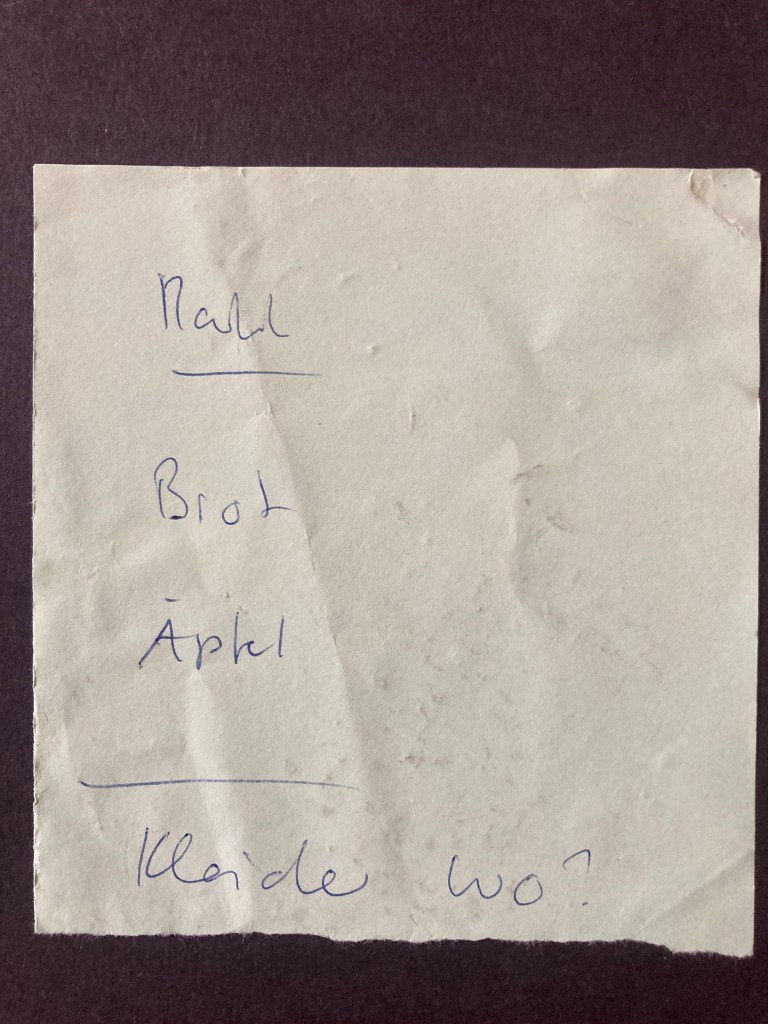 Markt
Brot
Äpfel
Kleider wo?